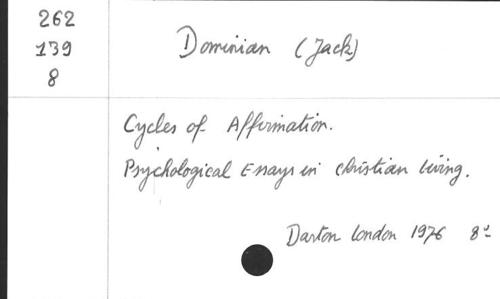 262
139
8
Dominian (Jack)
Cycles of Affirmation.
Psychological Essays in christian living.
Darton london 1976 8º